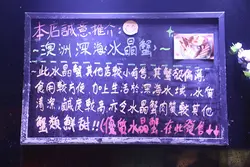 本店誠意推介:
~澳洲深海水晶蟹~
~此水晶蟹其他店較小有售,其蟹殼偏薄,
食用較方便,加上生活於~深海水域,水質
清潔~鹹度較高,亦令水晶蟹肉質較其他
蟹類鮮甜!!(優質水晶蟹,在北